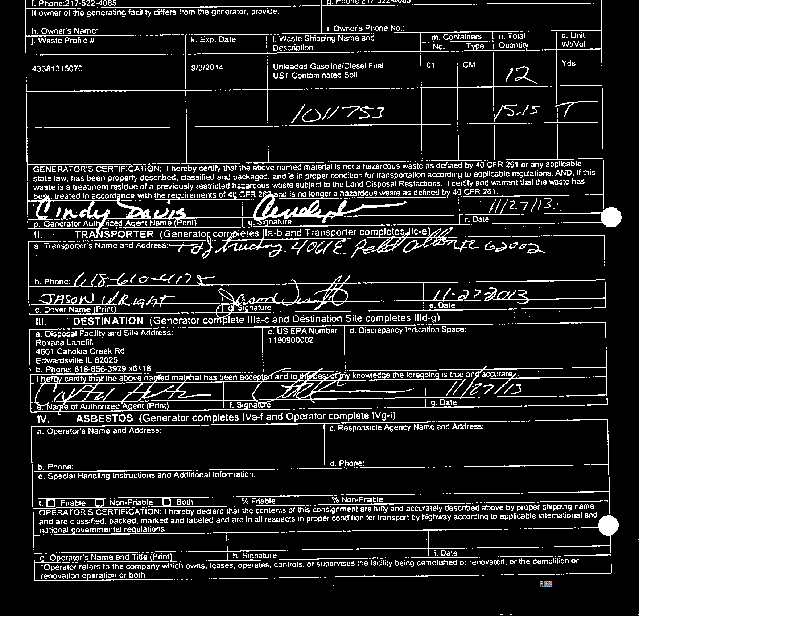 f. Phone: 217-522-4085
g. Phone: 217-522-4085
If owner of the generating facility differs from the generator, provide:
h. Owner's Name:
i. Owner's Phone No.:
j. Waste Profile #
k. Exp. Date
l. Waste Shipping Name and Description
m. Containers
No. Type
n. Total Quantity
o. Unit Wt/Vol
9/3/2014
Unleaded Gasoline/Diesel Fuel
UST Contaminated Soil
01
CM
12
Yds
1011753
15.15
T
GENERATOR'S CERTIFICATION: I hereby certify that the above named material is not a hazardous waste as defined by 40 CFR 261 or any applicable
state law, has been properly described, classified and packaged, and is in proper condition for transportation according to applicable regulations. AND, if this
waste is a treatment residue of a previously restricted hazardous waste subject to the Land Disposal Restrictions. I certify and warrant that the waste has
been treated in accordance with the requirements of 40 CFR 268 and is no longer a hazardous waste as defined by 40 CFR 261.
Cindy Davis
11/27/13
p. Generator Authorized Agent Name (Print)
q. Signature
r. Date
II. TRANSPORTER (Generator completes IIa-b and Transporter completes IIc-e)
a. Transporter's Name and Address:
62002
b. Phone: 618-610-4175
JASON WRIGHT
11-27-2013
c. Driver Name (Print)
d. Signature
e. Date
III. DESTINATION (Generator complete IIIa-c and Destination Site completes IIId-g)
a. Disposal Facility and Site Address:
c. US EPA Number
d. Discrepancy Indication Space:
Roxana Landfill
1190900002
4601 Cahokia Creek Rd
Edwardsville IL 62025
b. Phone: 618-656-3929 x6118
I hereby certify that the above named material has been accepted and to the best of my knowledge the foregoing is true and accurate.
11/27/13
e. Name of Authorized Agent (Print)
f. Signature
g. Date
IV. ASBESTOS (Generator completes IVa-f and Operator complete IVg-i)
a. Operator's Name and Address:
c. Responsible Agency Name and Address:
b. Phone:
d. Phone:
e. Special Handling Instructions and Additional Information:
f. Friable Non-Friable Both % Friable % Non-Friable
OPERATOR'S CERTIFICATION: I hereby declare that the contents of this consignment are fully and accurately described above by proper shipping name
and are classified, packed, marked and labeled and are in all respects in proper condition for transport by highway according to applicable international and
national governmental regulations.
g. Operator's Name and Title (Print)
h. Signature
i. Date
*Operator refers to the company which owns, leases, operates, controls, or supervises the facility being demolished or renovated, or the demolition or
renovation operation or both